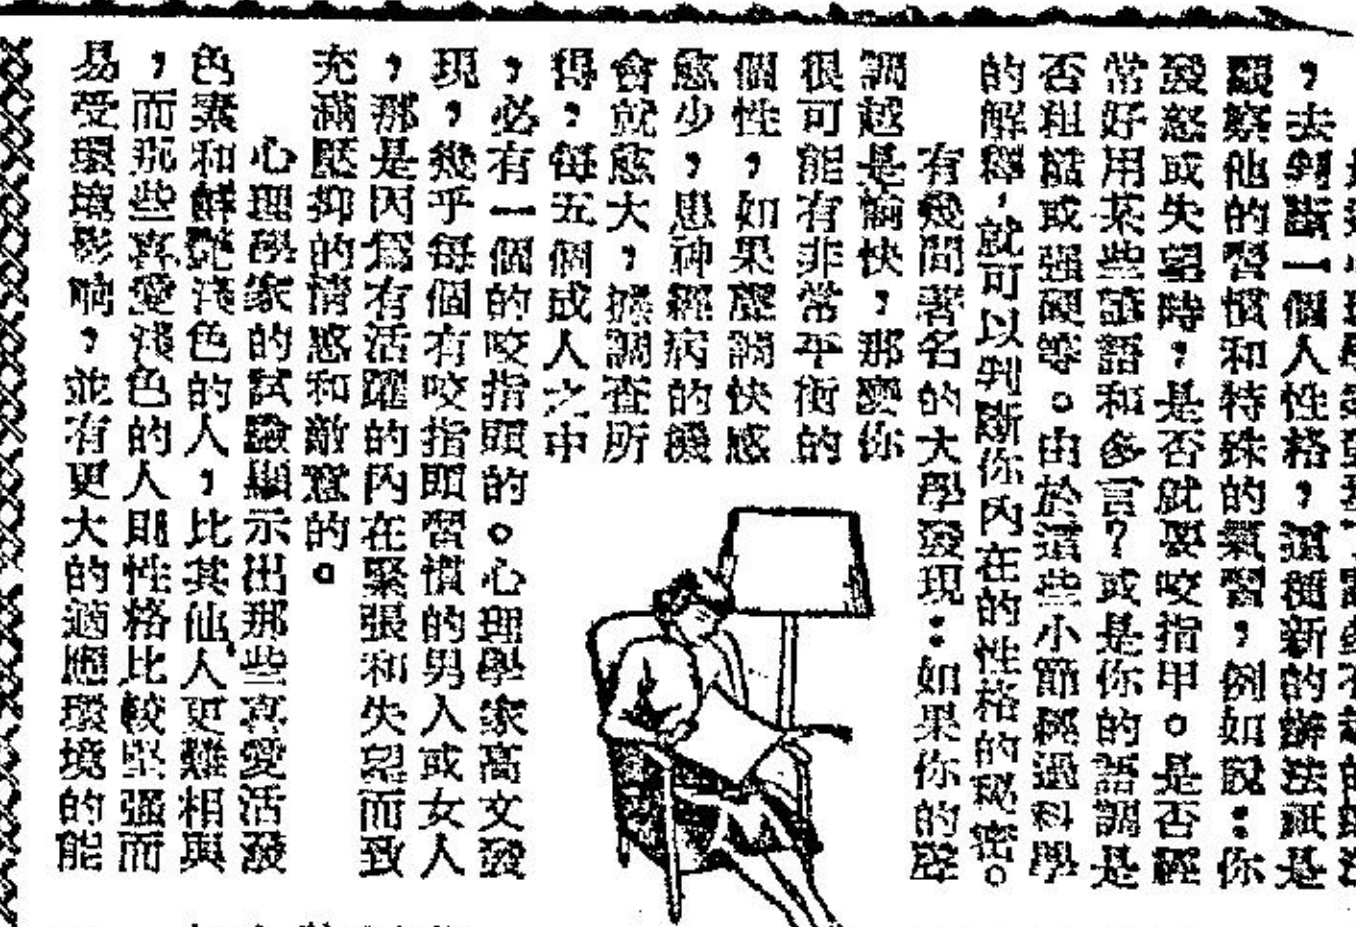 ，去判斷一個人性格，這種新的辦法祇是
觀察他的習慣和特殊的氣習，例如說：你
發怒或失望時，是否就要咬指甲。是否經
常好用某些謎語和多言？或是你的語調是
否粗糙或强硬等。由於這些小節經過科學
的解釋，就可以判斷你內在的性格的秘密。
有幾間著名的大學發現：如果你的聲
調越是愉快，那麼你
很可能有非常平衡的
個性，如果聲調快感
愈少，患神經病的機
會就愈大，據調查所
得，每五個成人之中
，必有一個的咬指頭的。心理學家高文發
現，幾乎每個有咬指頭習慣的男入或女人
，那是因爲有活躍的內在緊張和失望而致
充滿壓抑的情感和敵意的。
心理學家的試驗顯示出那些喜愛活潑
色素和鮮艷淺色的人，比其他人更難相與
，而那些喜愛淺色的人則性格比較堅强而
易受環境影响，並有更大的適應環境的能